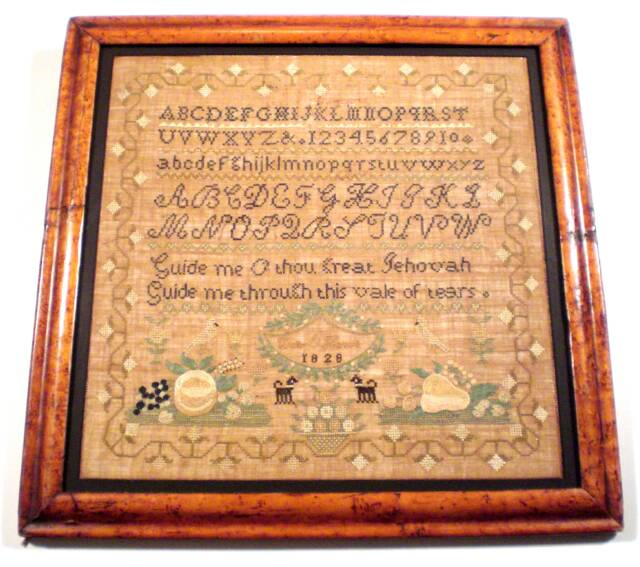 ABCDEFGHIJKLMNOPQRST
UVWXYZ&.12345678910
abcdefghijklmnopqrstuvwxyz
ABCDEFGHIJKL
MNOPQRSTUVW
Guide me O thou Great Jehovah
Guide me through this vale of tears.
1828